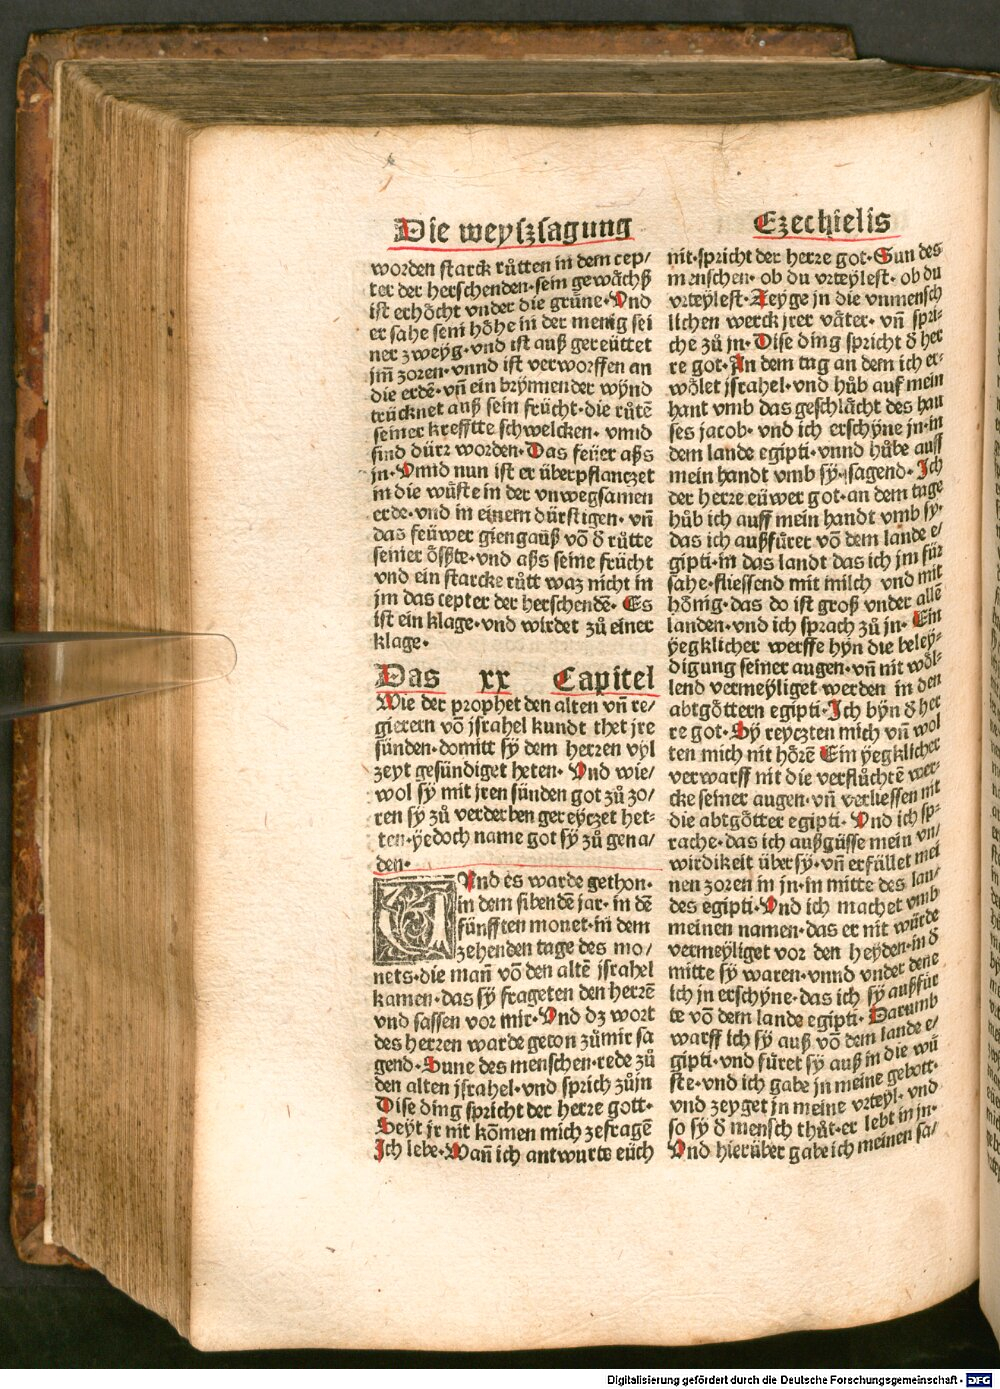 Die weyſzſagung
Ezechielis
worden ſtarck růtten in dem cep/
ter der herſchenden·ſein gewächß
iſt erhöcht vnder die grüne·Vnd
er ſahe ſein höhe in der menig ſei
ner zweyg·vnd iſt auß gereüttet
jm̃ zoren·vnnd iſt verworffen an
die erdē·vñ ein brÿnnender wÿnd
trücknet auß ſein frücht·die růtē
ſeiner krefftte ſchwelcken· vnnd
ſind dürr worden·Das feüer aſß
jn·Vnnd nun iſt er überpflanczet
in die wüſte in der vnwegſamen
erde·vnd in einem dürſtigen· vñ
das feüwer gieng auß vō d̕ růtte
ſeiner öſßte·vnd aſß ſeine frücht
vnd ein ſtarcke růtt waz nicht in
jm das cepter der herſchendē· Es
iſt ein klage·vnd wirdet zů einer
klage·
Das xx Capitel
Wie der prophet den alten vñ re/
gierern vō jſrahel kundt thet jre
ſünden·domitt ſÿ dem herren vyl
zeyt geſündiget heten· Vnd wie/
wol ſÿ mit jren ſünden got zů zo/
ren ſÿ zů verderben gereyczet het-
ten·ÿedoch name got ſÿ zů gena/
den·
VNd es warde gethon·
in dem ſibendē jar· in dē
fünfften monet·in dem
zehenden tage des mo/
nets·die mañ vō den altē jſrahel
kamen·das ſÿ frageten den herrē
vnd ſaſſen vor mir·Vnd dz wort
des herren warde geton zů mir ſa
gend·Sune des menſchen·rede zů
den alten jſrahel·vnd ſprich zů jn
Diſe ding ſpricht der herre gott·
Seyt jr nit kōmen mich ze fragē
Ich lebe·Wañ ich antwurte eüch
nit·ſpricht der herre got·Sun des
menſchen·ob du vrteyleſt·ob du
vrteyleſt·Zeyge jn die vnmenſch
lichen werck jrer väter· vñ ſpri-
che zů jn·Diſe ding ſpricht d̕ her
re got·An dem tag an dem ich er-
wölet jſrahel·vnd hůb auf mein
hant vmb das geſchlächt des hau
ſes jacob· vnd ich erſchyne jn·in
dem lande egipti·vnnd hůbe auff
mein handt vmb ſÿ·ſagend· Ich
der herre eüwer got·an dem tage
hůb ich auff mein handt vmb ſÿ·
das ich außfüret vō dem lande e/
gipti·in das landt das ich jm für
ſahe·flieſſend mit milch vnd mit
hönig·das do iſt groß vnder allē
landen·vnd ich ſprach zů jn· Ein
ÿegklicher werffe hÿn die beley-
digung ſeiner augen·vñ nit wöl-
lend vermeÿliget werden in den
abtgöttern egipti·Ich bÿn d̕ her
re got·Sÿ reyczten mich vñ wol
ten mich nit hörē Ein ÿegklicher
verwarff nit die verflůchtē wer-
cke ſeiner augen·vñ verlieſſen nit
die abtgötter egipti· Vnd ich ſp-
rache·das ich außgüſſe mein vn/
wirdikeit über ſÿ·vñ erfüllet mei
nen zoren in jn·in mitte des lan/
des egipti·Vnd ich machet vmb
meinen namen·das er nit würde
vermeÿliget vor den heyden·in d̕
mitte ſÿ waren·vnnd vnder dene
ich jn erſchyne·das ich ſÿ außfür
te vō dem lande egipti· Darumb
warff ich ſÿ auß vō dem lande e/
gipti·vnd füret ſÿ auß in die wü
ſte·vnd ich gabe jn meine gebott·
vnd zeyget jn meine vrteyl· vnd
ſo ſy d̕ menſch thůt·er lebt in jn·
Vnd hierüber gabe ich meinen ſa/
Digitalisierung gefördert durch die Deutsche Forschungsgemeinschaft - DFG